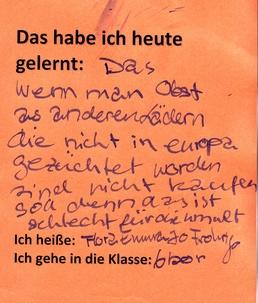 Das habe ich heute
gelernt: Das
wenn man Obst
aus anderen Ländern
die nicht in europa
gezeichtet worden
sind nicht kaufen
soll denn das ist
schlecht für die umwalt
Ich heiße: Flora
Ich gehe in die Klasse: